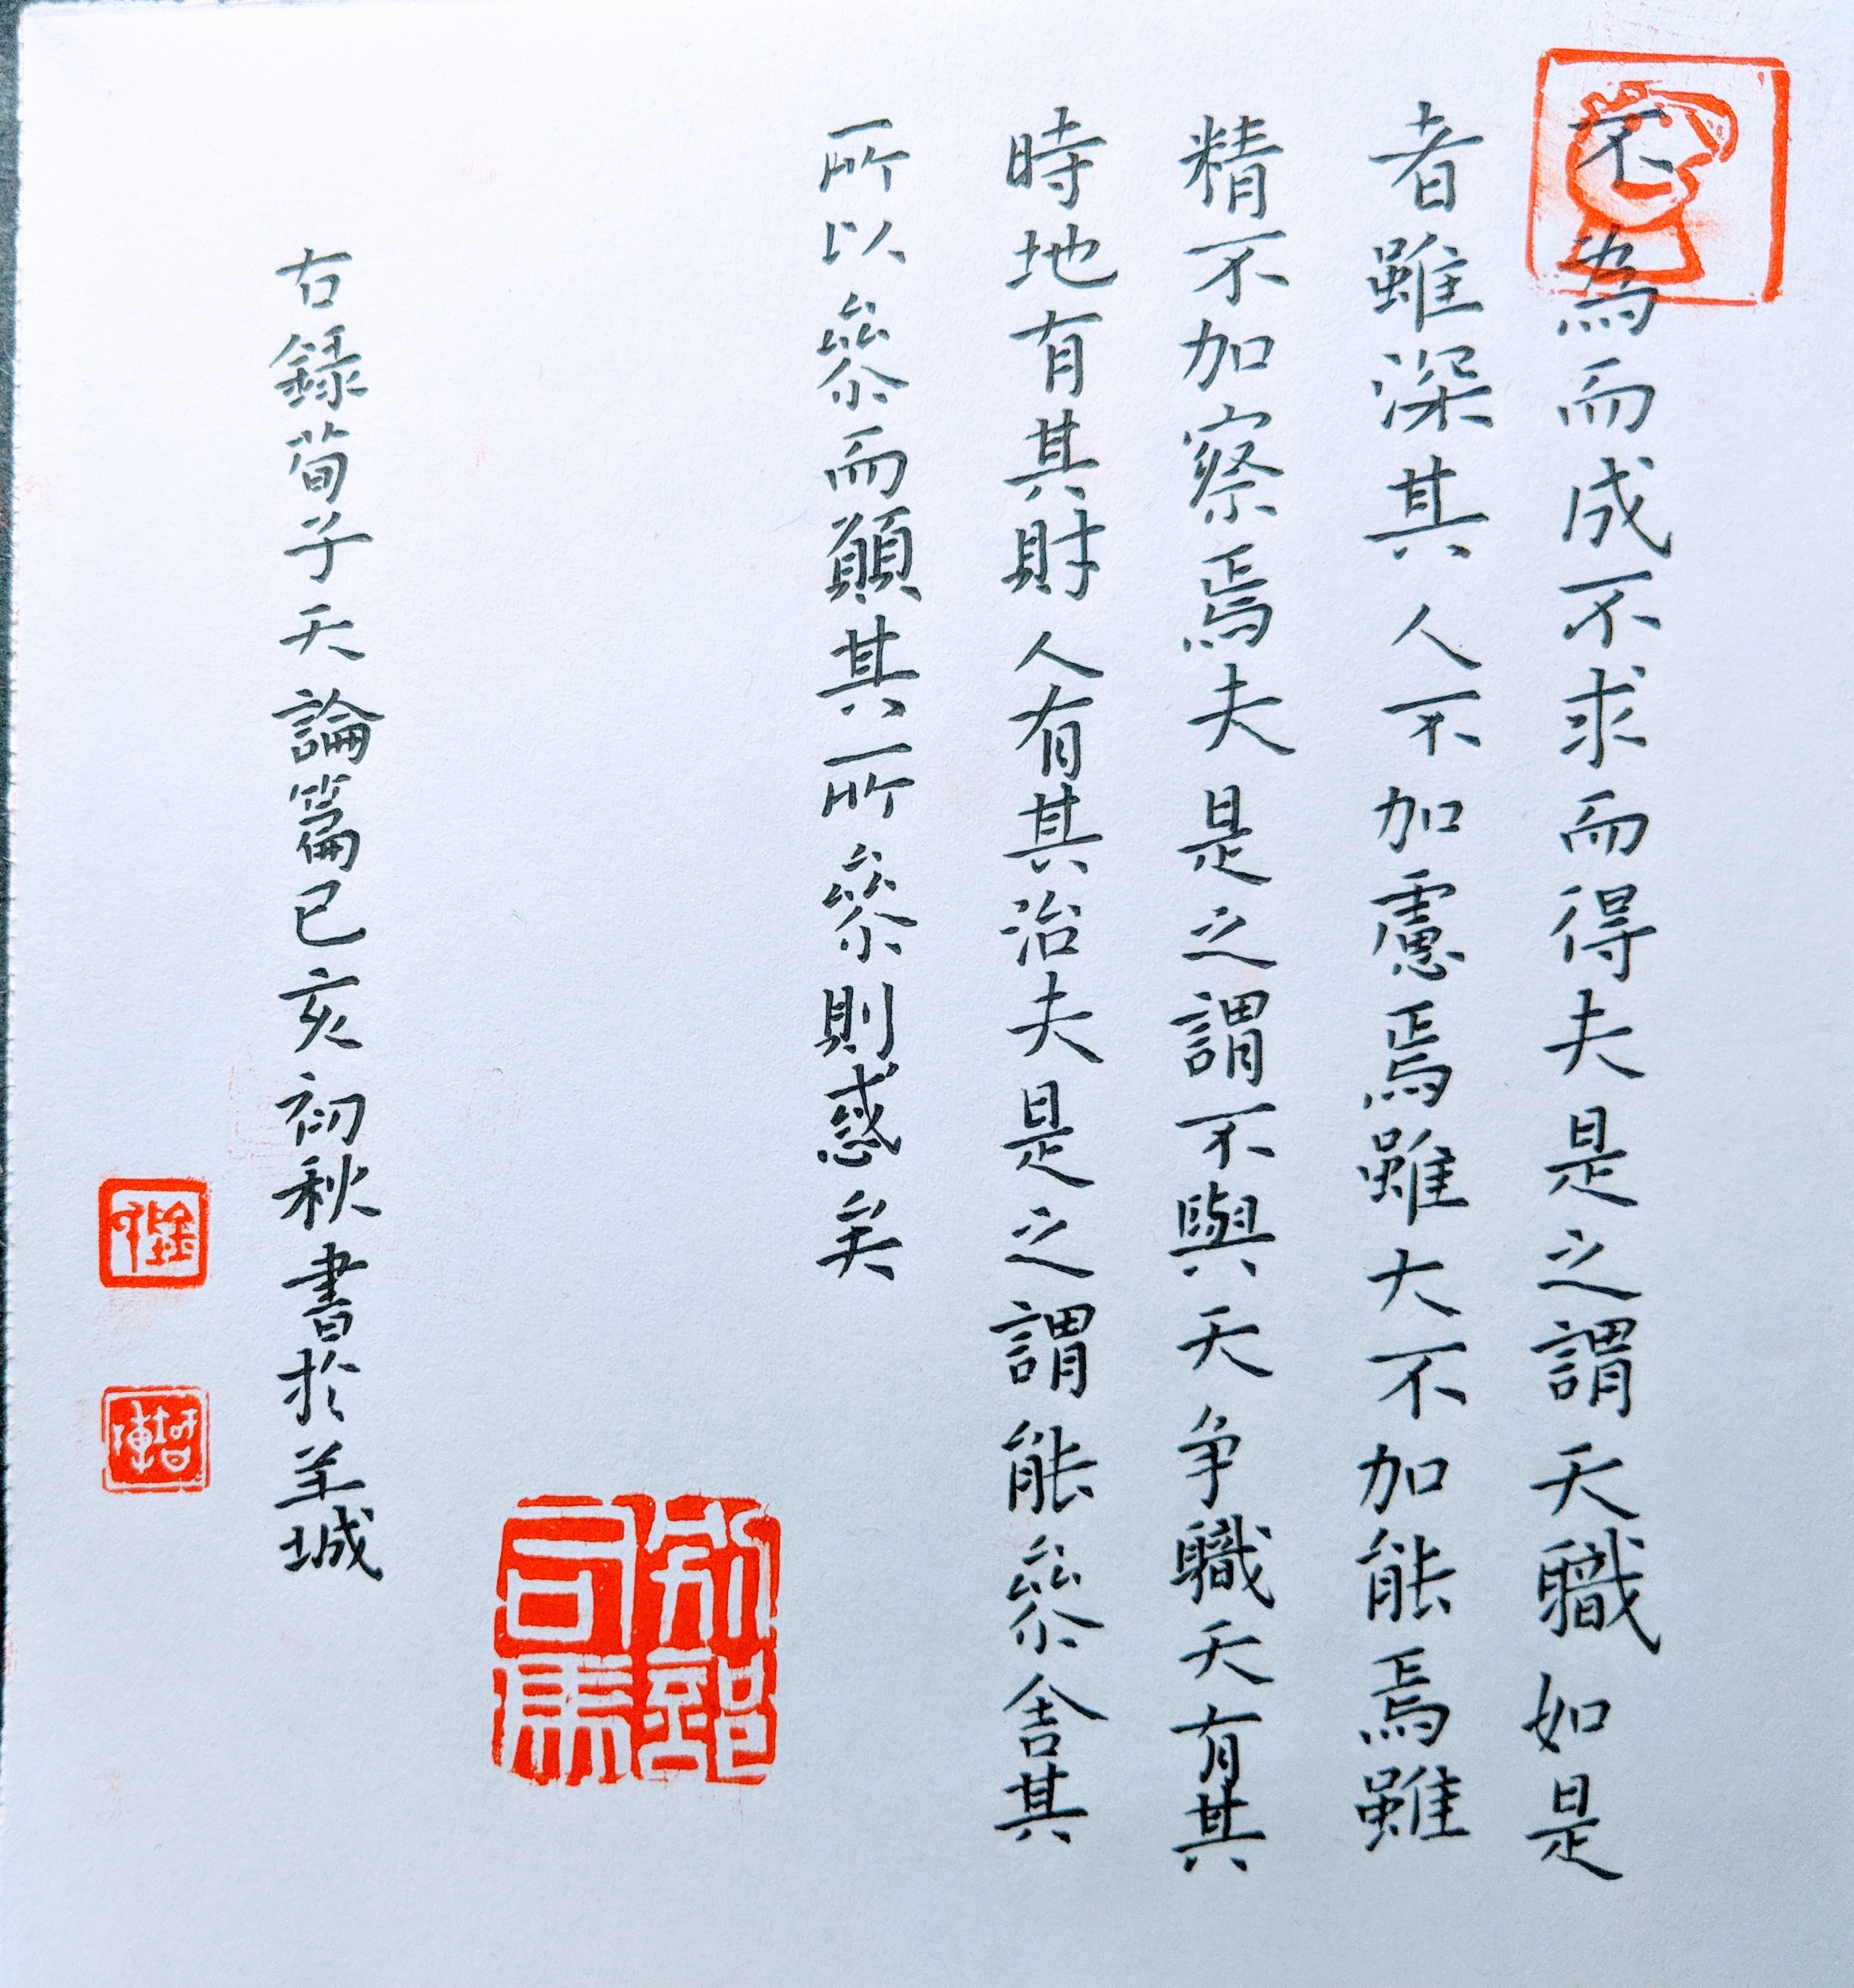 不為而成不求而得夫是之謂天職如是
者雖深其人不加慮焉雖大不加能焉雖
精不加察焉夫是之謂不與天争職天有其
時地有其財人有其治夫是之謂能參舍其
所以參而願其所參則惑矣
右録荀子天論篇己亥初秋書於羊城